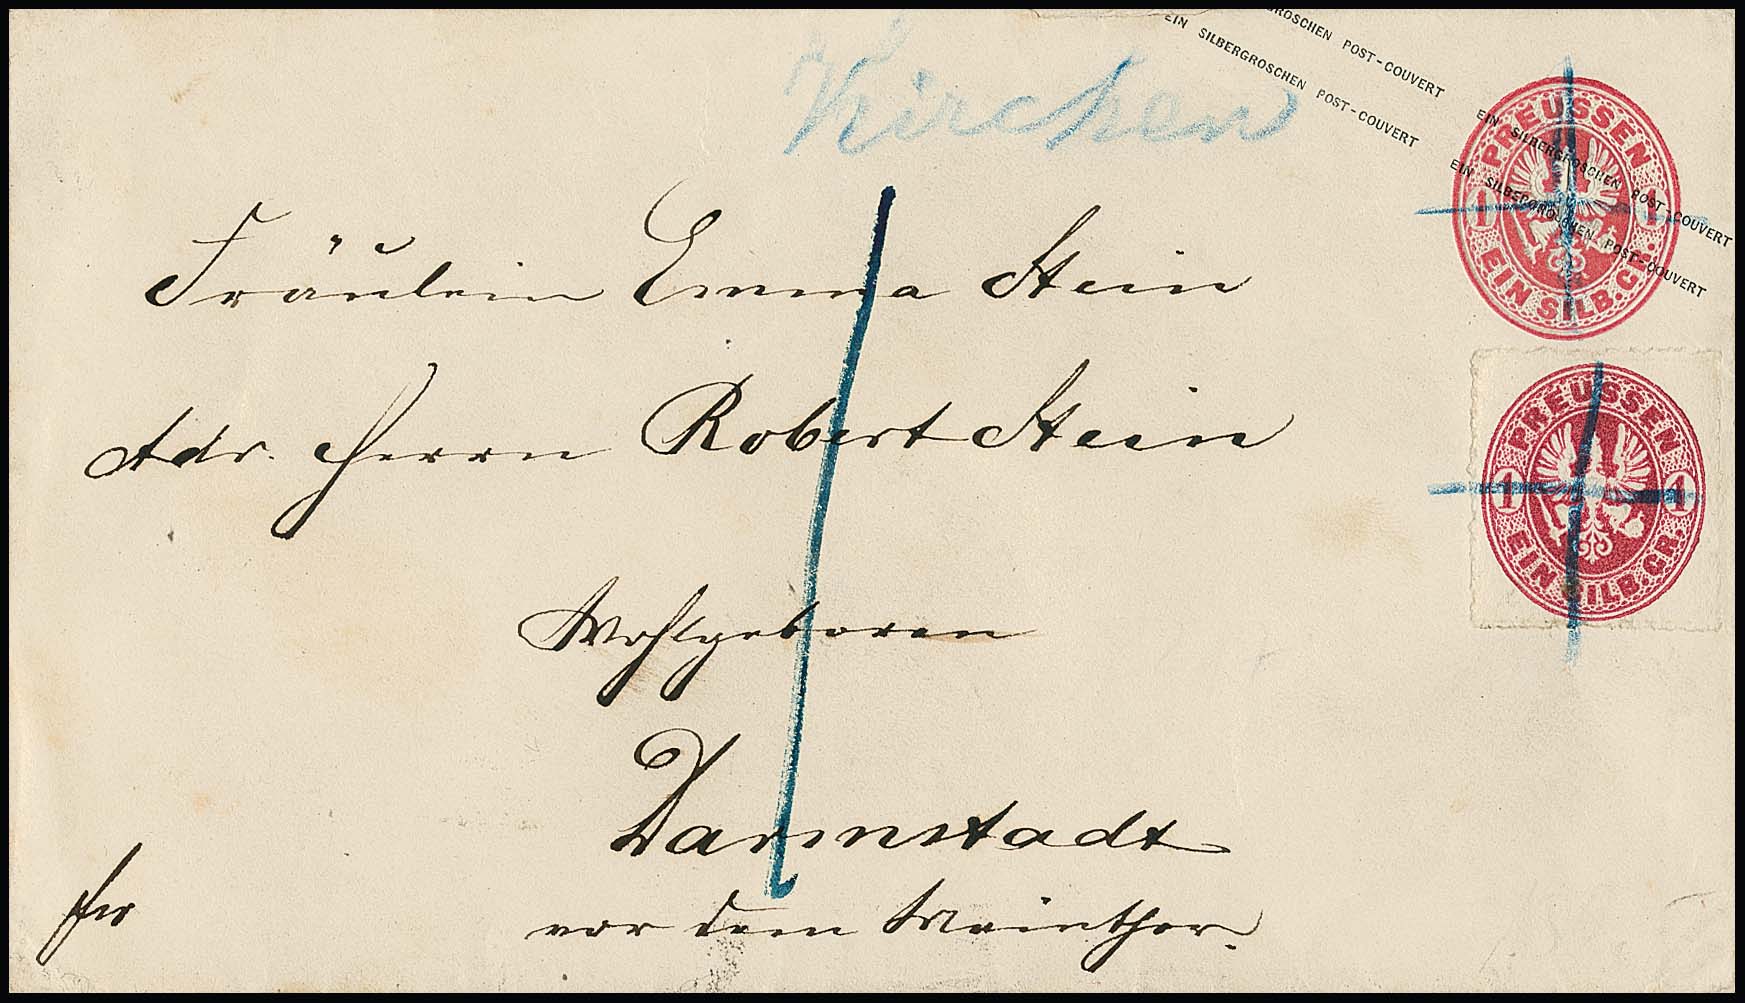 GROSCHEN POST-COUVERT EIN SILBERGROSCHEN POST-COUVERT
EIN SILBERGROSCHEN POST-COUVERT EIN SILBERGROSCHEN POST-COUVERT
Kirchen
PREUSSEN
1 1
EIN SILB. GR.
Fräulein Emma Stein
Adr. Herrn Robert Stein
PREUSSEN
1 1
EIN SILB. GR.
Wohlgeboren
Darmstadt
fro
vor dem Mainthor.